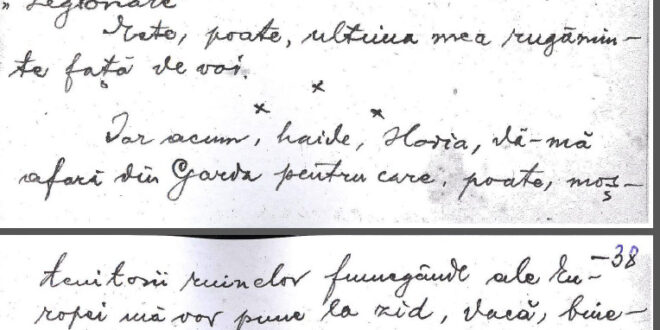 „ Legionare
Este, poate, ultima mea rugămin-
te față de voi.
x x x
Iar acum, haide, Horia, dă-mă
afară din Garda pentru care, poate, moș-
-38
tenitorii ruinelor fumegânde ale Eu-
ropei mă vor pune la zid, dacă, bine-